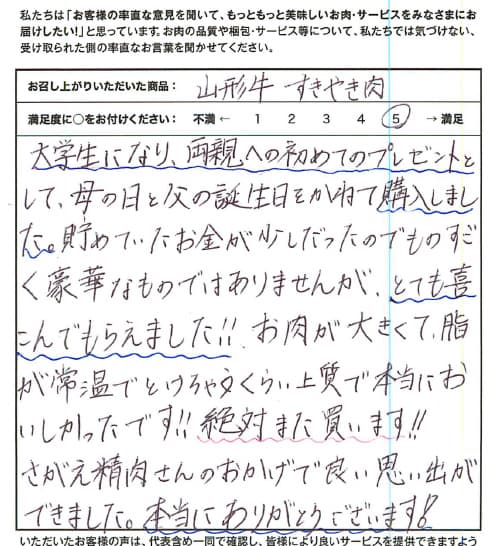 私たちは「お客様の率直な意見を聞いて、もっともっと美味しいお肉・サービスをみなさまにお
届けしたい!」と思っています。お肉の品質や梱包・サービス等について、私たちでは気づけない、
受け取られた側の率直なお言葉を聞かせてください。
お召し上がりいただいた商品： 山形牛 すきやき肉
満足度に○をお付けください： 不満 ← 1 2 3 4 5 → 満足
大学生になり、両親への初めてのプレゼントと
して、母の日と父の誕生日をかねて購入しまし
た。貯めていたお金が少しだったのでものすご
く豪華なものではありませんが、とても喜
こんでもらえました!! お肉が大きくて、脂
が常温でとけちゃうくらい上質で本当にお
いしかったです!! 絶対また買います!!
さがえ精肉さんのおかげで良い思い出が
できました。本当にありがとうございます!
いただいたお客様の声は、代表含め一同で確認し、皆様により良いサービスを提供できますよう